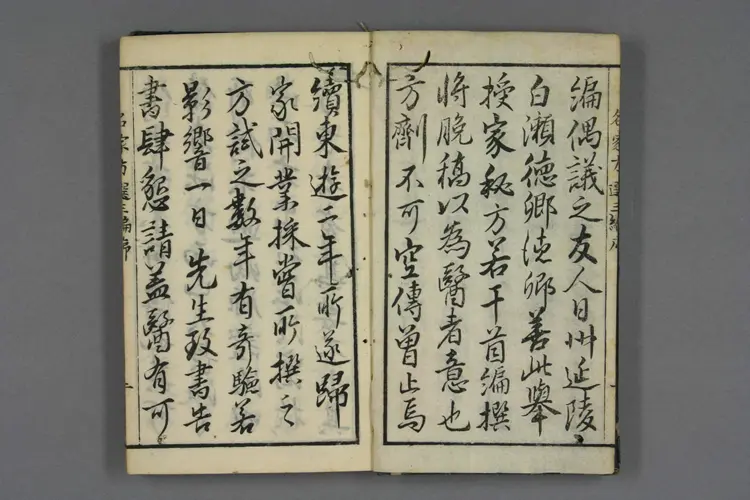 編偶議之友人日州延陵
白瀬德卿德卿善此舉
授家秘方若干首編撰
將脫稿以為醫者意也
方劑不可空傳曽止焉
名家方選三編序
續東遊二年所遂歸
家開業採嘗所撰之
方試之數年有奇驗若
影響一日先生致書告
書肆懇請蓋醫有可
名家方選三編序
一